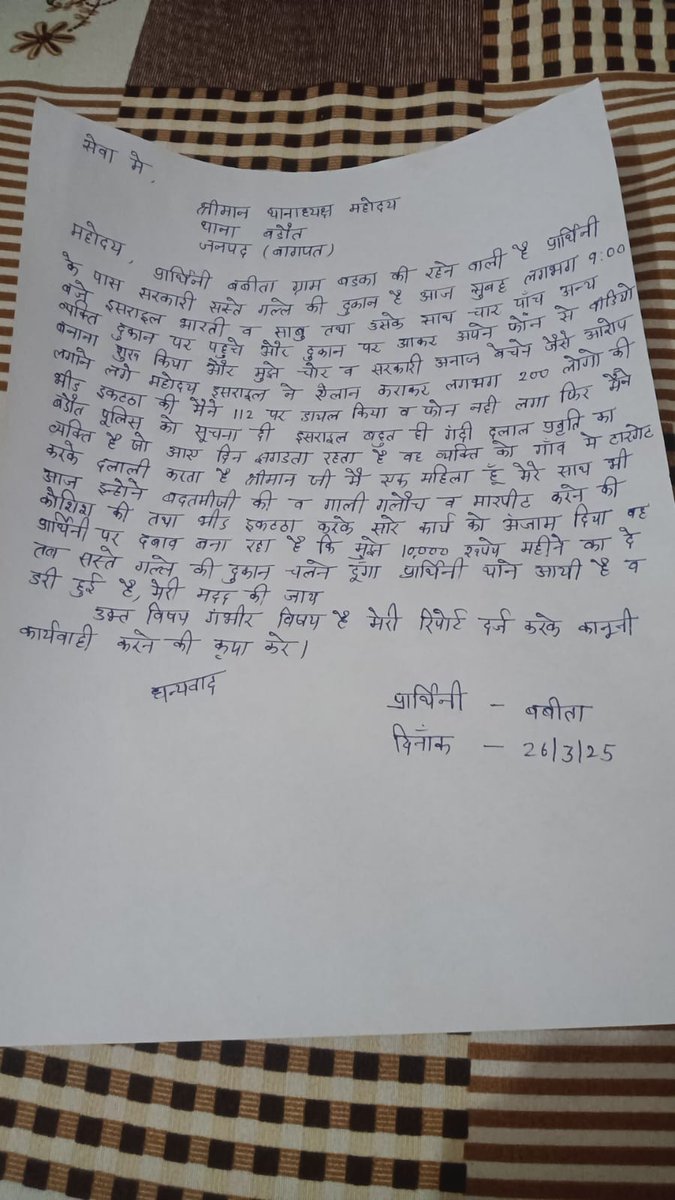 सेवा मे,
श्रीमान थानाध्यक्ष महोदय
थाना बडौत
जनपद (बागपत)
महोदय,
प्रार्थिनी बबीता ग्राम बडका की रहने वाली है प्रार्थिनी
के पास सरकारी सस्ते गल्ले की दुकान है आज सुबह लगभग 9:00
बजे इसराइल भारती व साबु तथा उसके साथ चार पाँच अन्य
व्यक्ति दुकान पर पहुंचे और दुकान पर आकर अपने फोन से वीडियो
बनाना शुरू किया और मुझे चोर व सरकारी अनाज बेचने जैसे आरोप
लगाने लगे महोदय इसराइल ने ऐलान कराकर लगभग 200 लोगो की
भीड इकटठा की मैने 112 पर डायल किया व फोन नही लगा फिर मैंने
बडौत पुलिस को सूचना दी इसराइल बहुत ही गंदी दलाल प्रवृति का
व्यक्ति है जो आए दिन झगडता रहता है वह व्यक्ति को गाँव मे टारगेट
करके दलाली करता है श्रीमान जी मै एक महिला हूँ मेरे साथ भी
आज इन्होने बदतमीजी की व गाली गलौच व मारपीट करने की
कौशिश की तथा भीड इकटठा करके सारे कार्य को अंजाम दिया वह
प्रार्थिनी पर दबाव बना रहा है कि मुझे 10,000 रूपये महीने का दे
तब सस्ते गल्ले की दुकान चलने दूंगा प्रार्थिनी थाने आयी है व
डरी हुई है, मेरी मदद की जाय
उक्त विषय गंभीर विषय है मेरी रिपोर्ट दर्ज करके कानूनी
कार्यवाही करने की कृपा करे।
धन्यवाद
प्रार्थिनी - बबीता
दिनाँक - 26/3/25